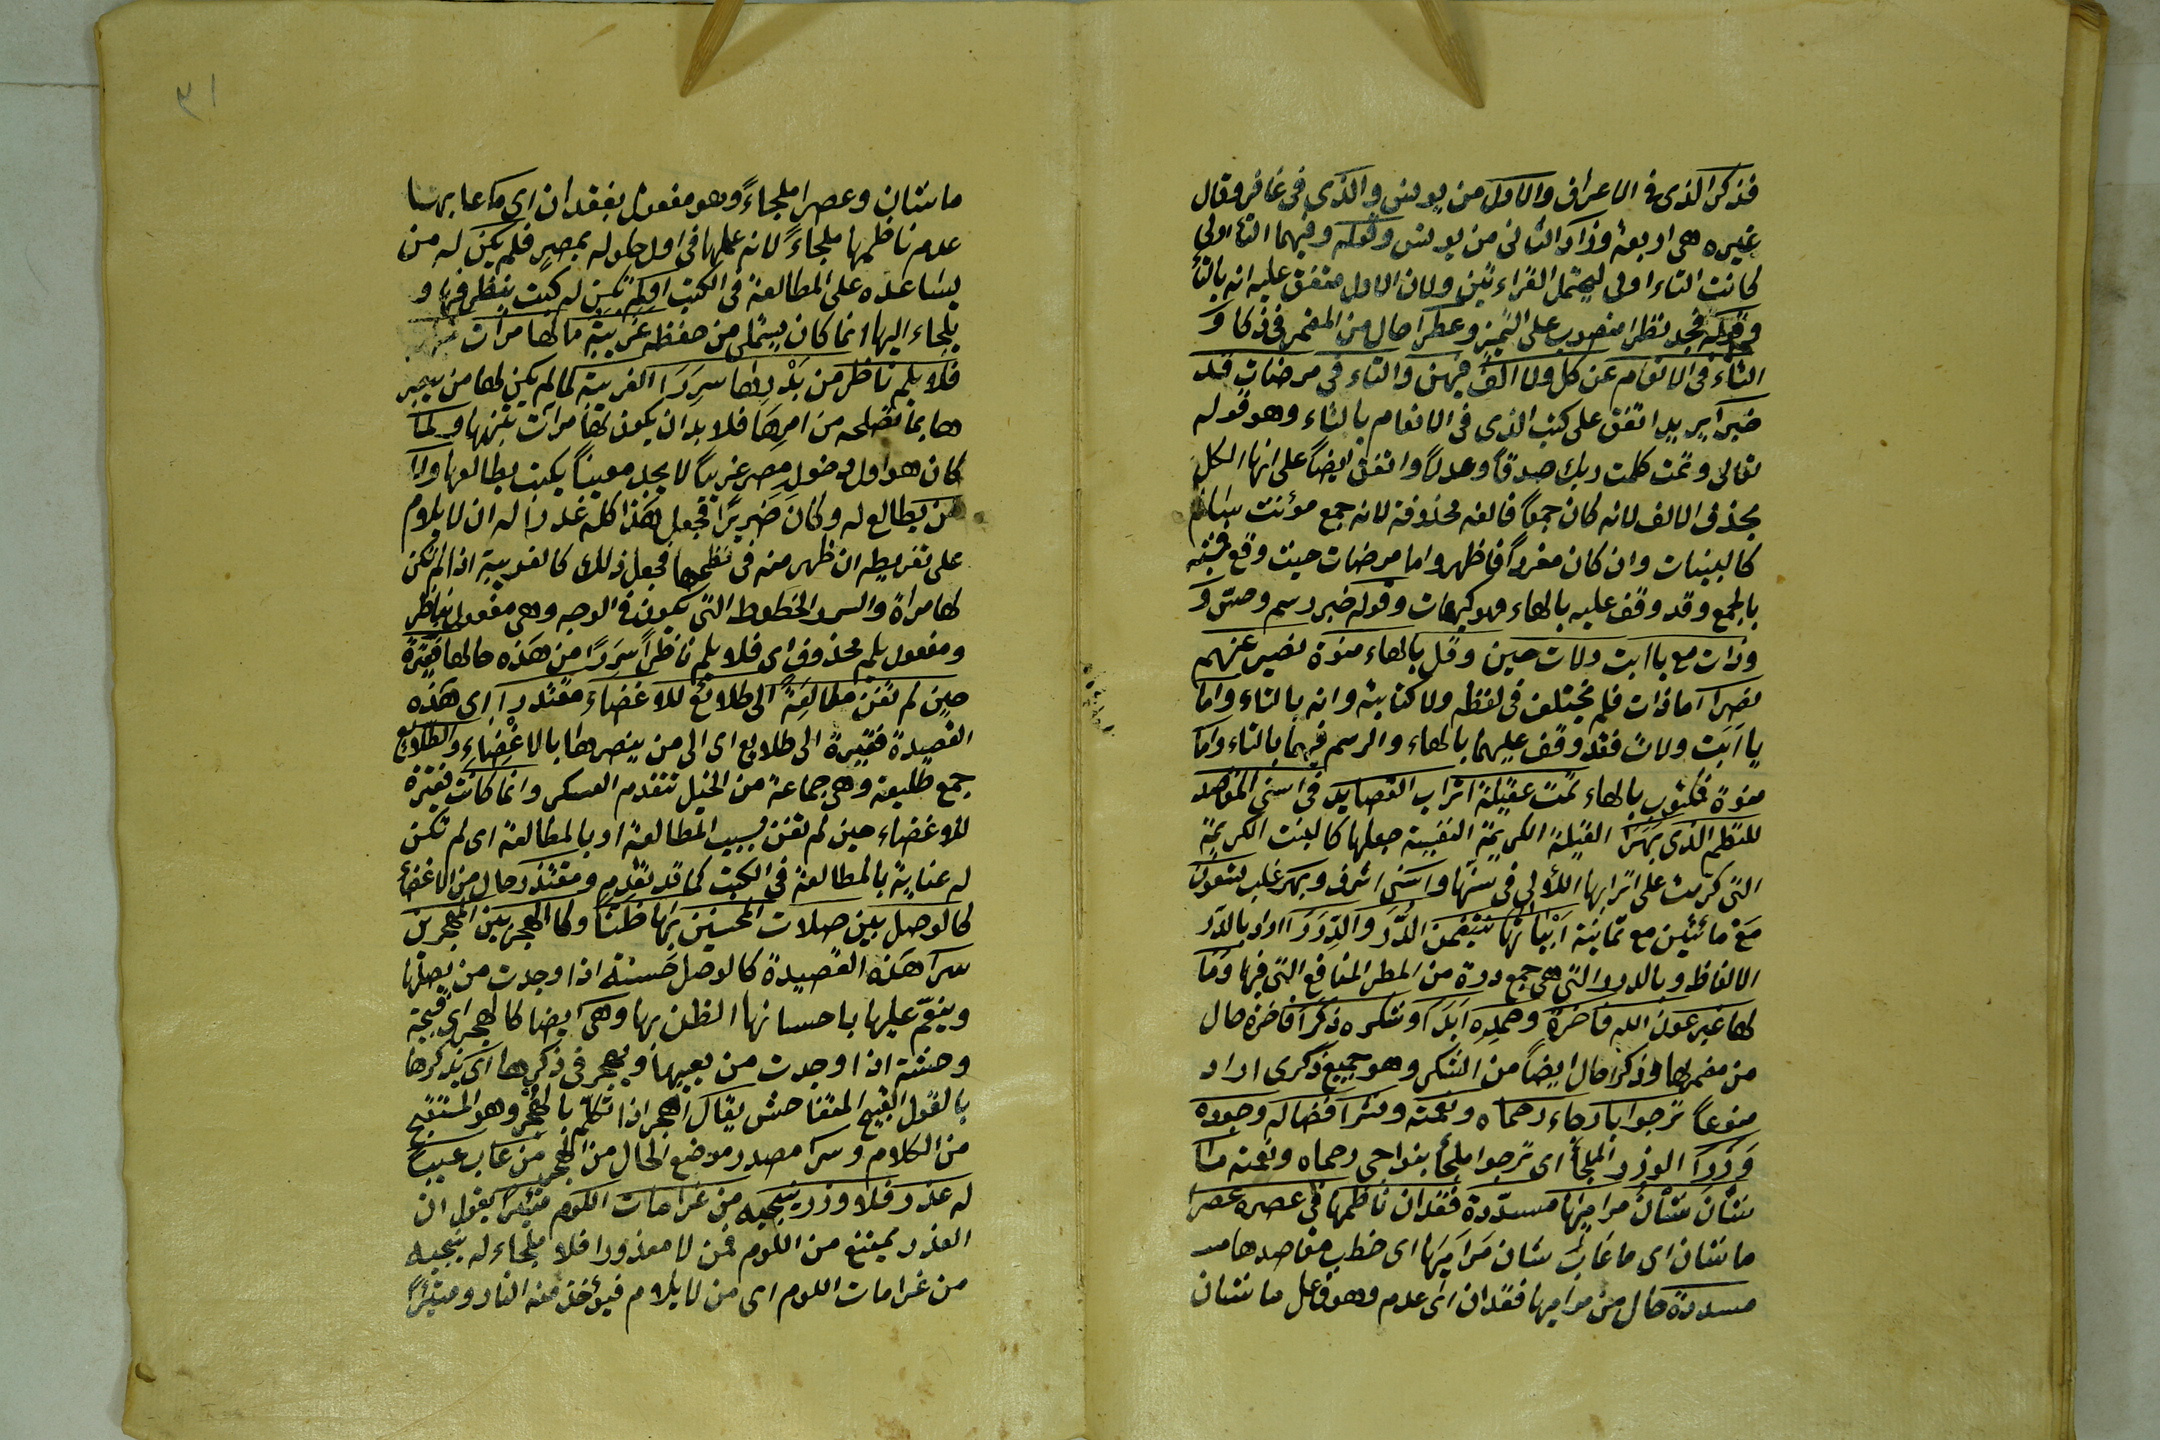 فذكر الذى فى الاعراف والاول من يونس والذى فى غافر وقال
غيره هى اربعة وزاد الثانى من يونس وقوله وفيهما التاء اولى
كانت التاء اولى ليحتمل القراءتين ولان الاول متفق عليه انه بالتاء
وقوله فجد نظرا منصوب على التميز وعطرا حال من المضمر فى ذكا و
التاء فى الانعام عن كل ولا الف فيهن والتاء فى مرضات قد
خبرا يريد اتفق على كتب الذى فى الانعام بالتاء وهو قوله
تعالى وتمت كلمت ربك صدقا وعدلا واتفق ايضا على انها الكل
بحذف الالف لانه كان جمعا فالفه محذوفة لانه جمع مؤنث سالم
كالبينات وان كان مفردا فاظهر واما مرضات حيث وقع فيشبه
بالجمع وقد وقف عليه بالهاء وقوله خبر رسم وحسن و
وذات مع يا ابت ولات حين وقل بالهاء منوة نصير عنهم
نصرا اما ذات فلم تختلف فى لفظه ولا كتابيته وانه بالتاء واما
يا ابت ولات فقد وقف عليهما بالهاء والرسم فيهما بالتاء واما
منوة فمكتوب بالهاء تمت عقيلة اتراب القصايد فى اسنى المقاصد
للنظم الذى بهرا العقيلة الكريمة النفيسة جعلها كالبنت الكريمة
التى كرمت على اترابها اللاتى فى سنها واسنى اشرف وبهر غلب تسعون
مع مائتين مع ثمانية ابياتها ينتظمن الدر والدررا اراد بالدر
الالفاظ وبالدرر التى هى جمع درة من المطر المنافع التى فيها وما
لها غير عون الله فاخرة وحمده ابدا وشكره ذكرا فاخرة حال
من مضمر لها وذكرا حال ايضا من الشكر وهو جميع ذكرى اراد
منوعا ترجوا بارجاء رحماه ونعمته ونشر افضاله وجوده
وزرا الوزر الملجأ اى ترجوا ملجأ بنواحى رحماه ونعمته ما
شان شان مراميها مسددة فقدان ناظمها فى عصره عصرا
ما شان اى ما عاب شان مراميها اى خطب مقاصدها
مسددة حال من مراميها فقدان اى عدم وهو فاعل ما شان
٣١
ما شان وعصرا ملجاء وهو مفعول بفقدان اى ما عابها
عدم ناظمها ملجاء لانه عملها فى اول حلوله بمصر فلم يكن له من
يساعده على المطالعة فى الكتب او لم تكن له كتب ينظر فيها و
يلجاء اليها انما كان يتملى من حفظه غريبة ما لها مرات
فلا يلم ناظر من بدرها سررا الغريبة لما لم يكن لها من يبصر
ها بما تصلحه من امرها فلا بد ان يكون لها مرات بنزنها ولما
كان هو اول دخول مصر غريبا لا يجد معينا بكتب يطالعها ولا
من يطالع له وكان ضريرا فجعل هذا كله عذرا له ان لا يلام
على تفريطه ان ظهر منه فى نظمها فجعل ذلك كالغريبة اذا لم تكن
لها مراة والسرر الخطوط التى تكون فى الوجه وهى مفعول بناظر
ومفعول يلم محذوف اى فلا يلم ناظرا سررا من هذه حالها فقيرة
حين لم تغن مطالعة الى طلائع للاغضاء معتذرا اى هذه
القصيدة فقيرة الى طلايع اى الى من ينصرها بالاغضاء والطلايع
جمع طليعة وهى جماعة من الخيل تتقدم العسكر وانما كانت فقيرة
للاغضاء حين لم تغن بسبب المطالعة او بالمطالعة اى لم تكن
له عناية بالمطالعة فى الكتب كما قد تقدم ومعتذر حال من الاغضاء
كالوصل بين صلات المحسنين بها ظنا وكالهجر بين المهجرين
سرا هذه القصيدة كالوصل حسنة اذا وجدت من يصلها
وينعم عليها باحسانها الظن بها وهى ايضا كالهجر اى قبيحة
وحشة اذا وجدت من يعيبها ويهجر فى ذكرها اى يذكرها
بالقول القبيح المتفاحش يقال اهجر اذا تكلم بالهجر وهو المستقبح
من الكلام وسرا مصدر موضع الحال من الهجر من عاب عيبا
له عذر فلا وزر ينجيه من عزامات اللوم متئرا يقول ان
العذر يمتنع من اللوم فمن لام معذورا فلا ملجاء له ينجيه
من عزامات اللوم اى من لا يلام فيؤخذ منه الثار ومتئرا